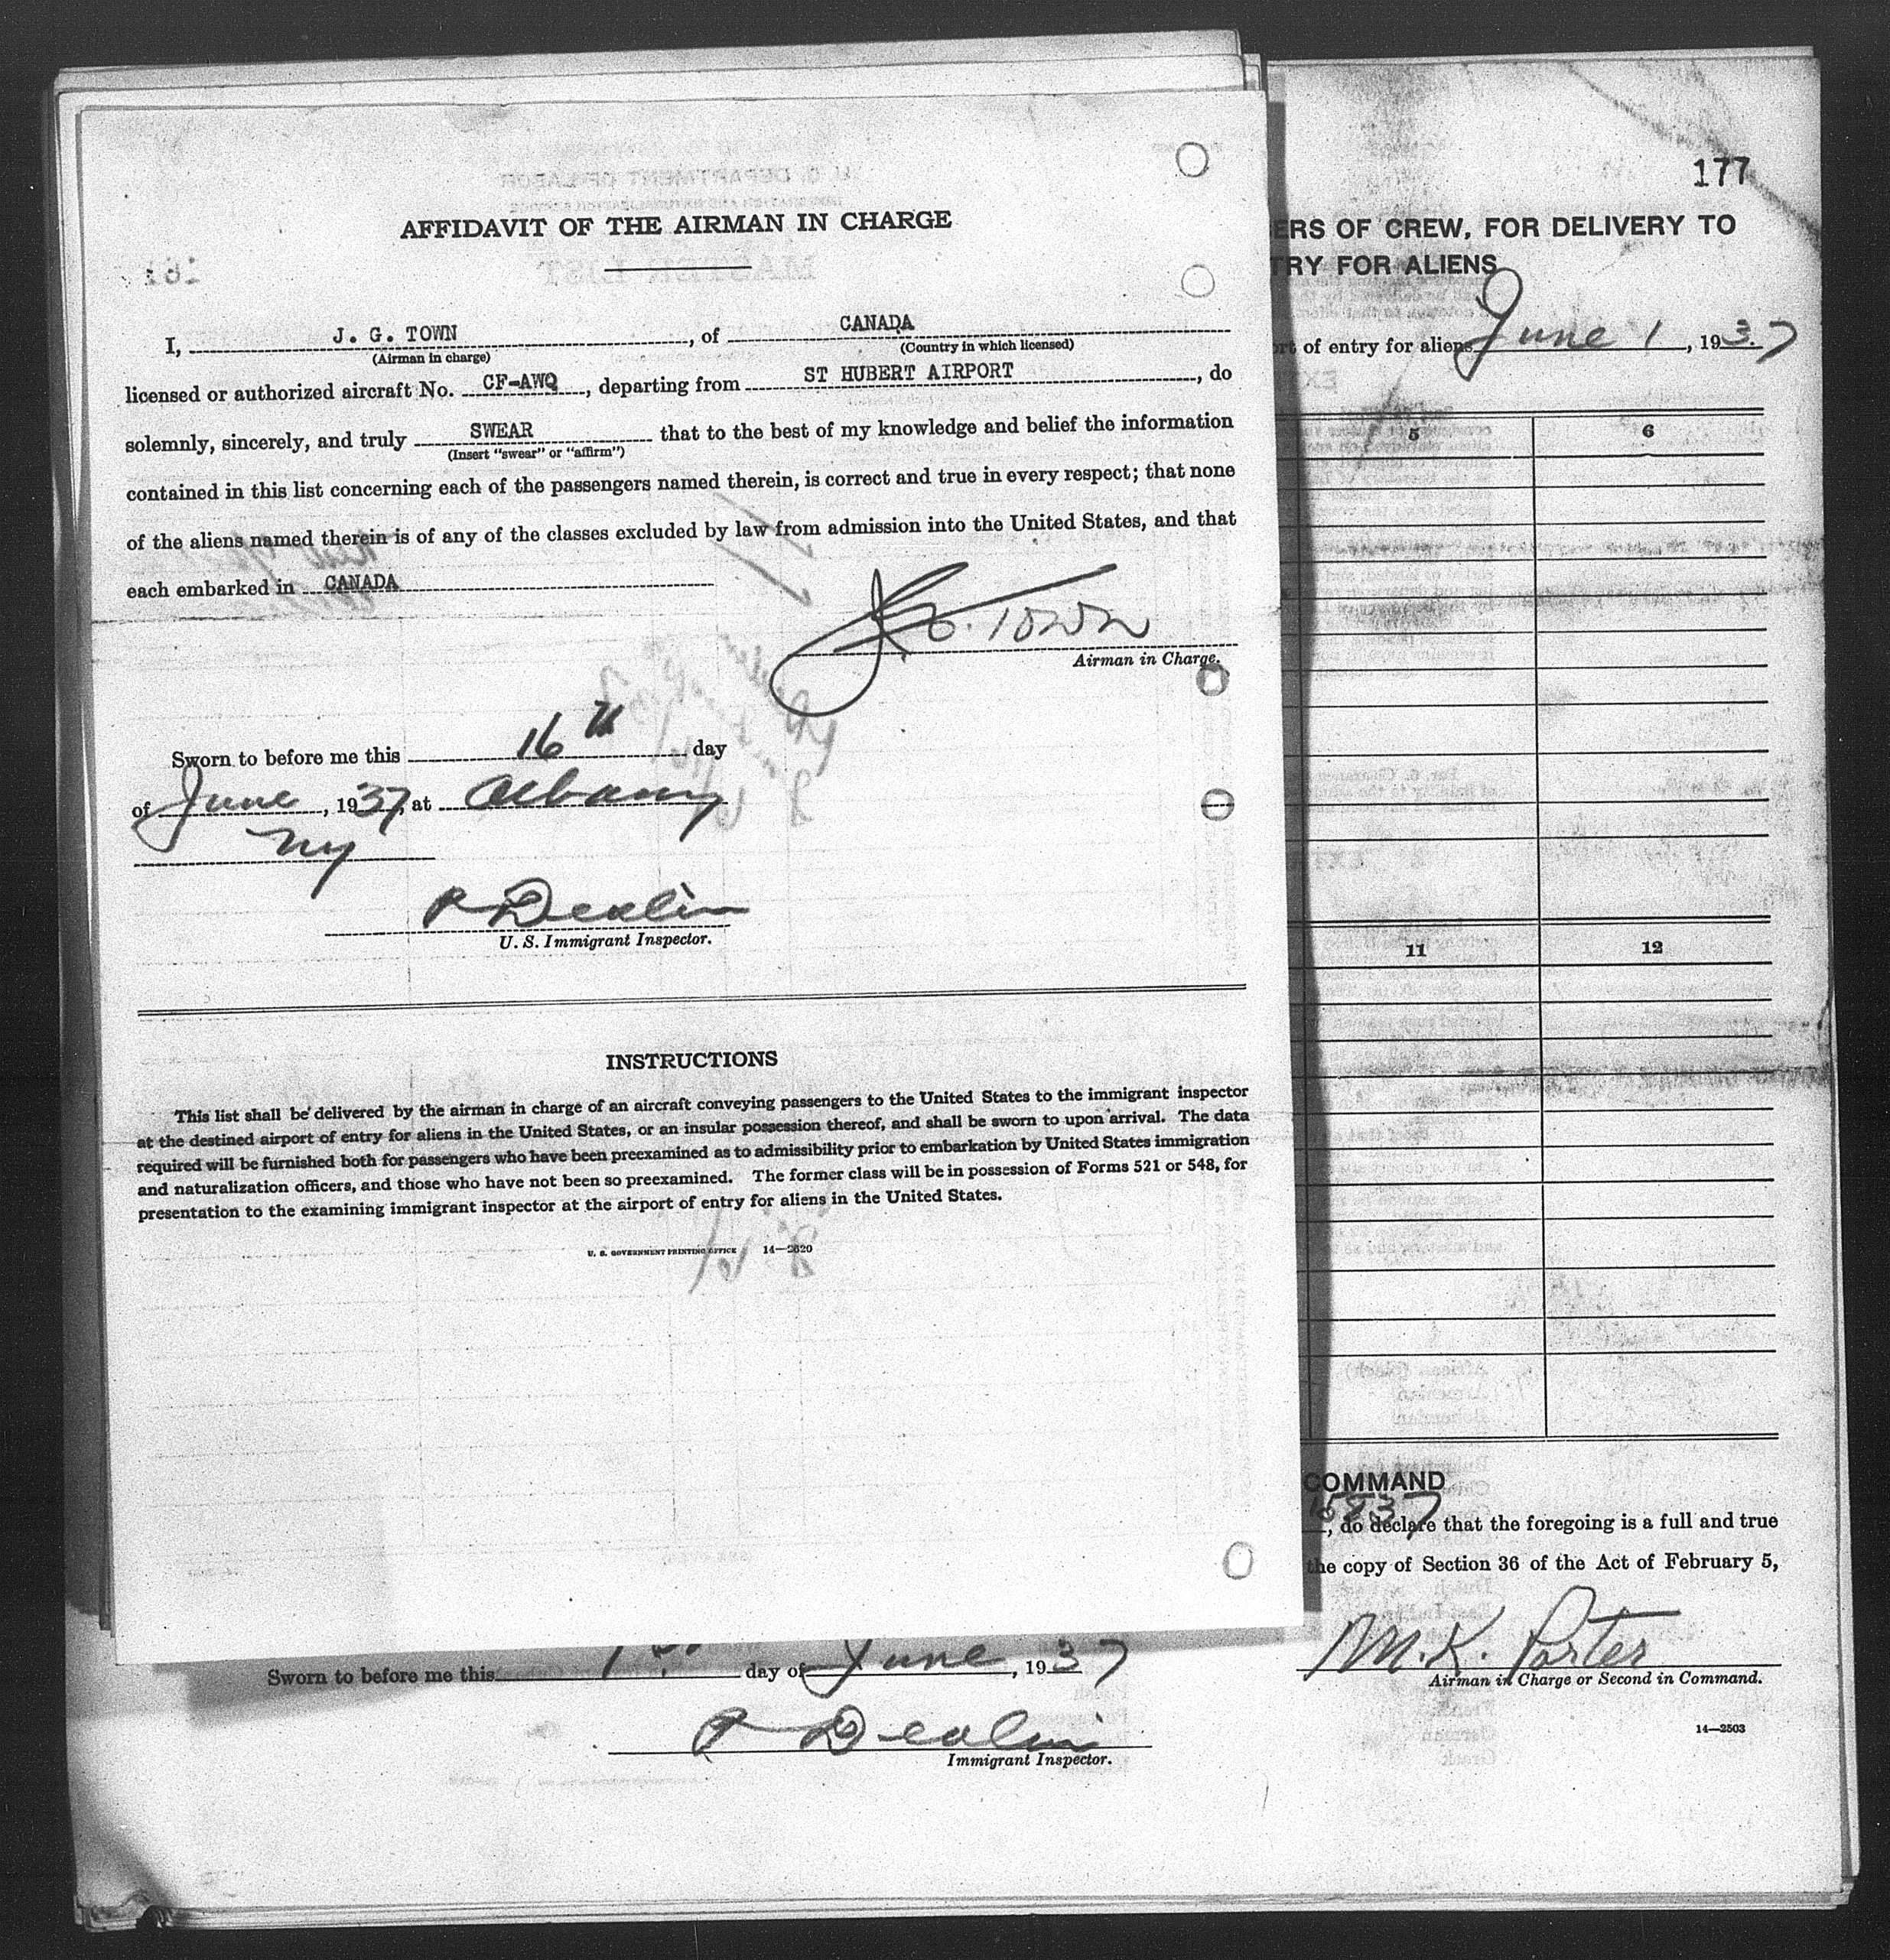 AFFIDAVIT OF THE AIRMAN IN CHARGE
I, J. G. TOWN, of CANADA
(Airman in charge) (Country in which licensed)
licensed or authorized aircraft No. CF-AWQ, departing from ST HUBERT AIRPORT, do
solemnly, sincerely, and truly SWEAR that to the best of my knowledge and belief the information
(Insert "swear" or "affirm")
contained in this list concerning each of the passengers named therein, is correct and true in every respect; that none
of the aliens named therein is of any of the classes excluded by law from admission into the United States, and that
each embarked in CANADA
J. G. Town
Airman in Charge.
Sworn to before me this 16th day
of June, 1937, at Albany
NY
U. S. Immigrant Inspector.
INSTRUCTIONS
This list shall be delivered by the airman in charge of an aircraft conveying passengers to the United States to the immigrant inspector
at the destined airport of entry for aliens in the United States, or an insular possession thereof, and shall be sworn to upon arrival. The data
required will be furnished both for passengers who have been preexamined as to admissibility prior to embarkation by United States immigration
and naturalization officers, and those who have not been so preexamined. The former class will be in possession of Forms 521 or 548, for
presentation to the examining immigrant inspector at the airport of entry for aliens in the United States.
U. S. GOVERNMENT PRINTING OFFICE 14—2620
177
ERS OF CREW, FOR DELIVERY TO
TRY FOR ALIENS
ort of entry for aliens June 1, 1937
5 6
11 12
COMMAND
15837, do declare that the foregoing is a full and true
the copy of Section 36 of the Act of February 5,
M. K. Porter
Airman in Charge or Second in Command.
Sworn to before me this 1st day of June, 1937
Immigrant Inspector.
14—2503